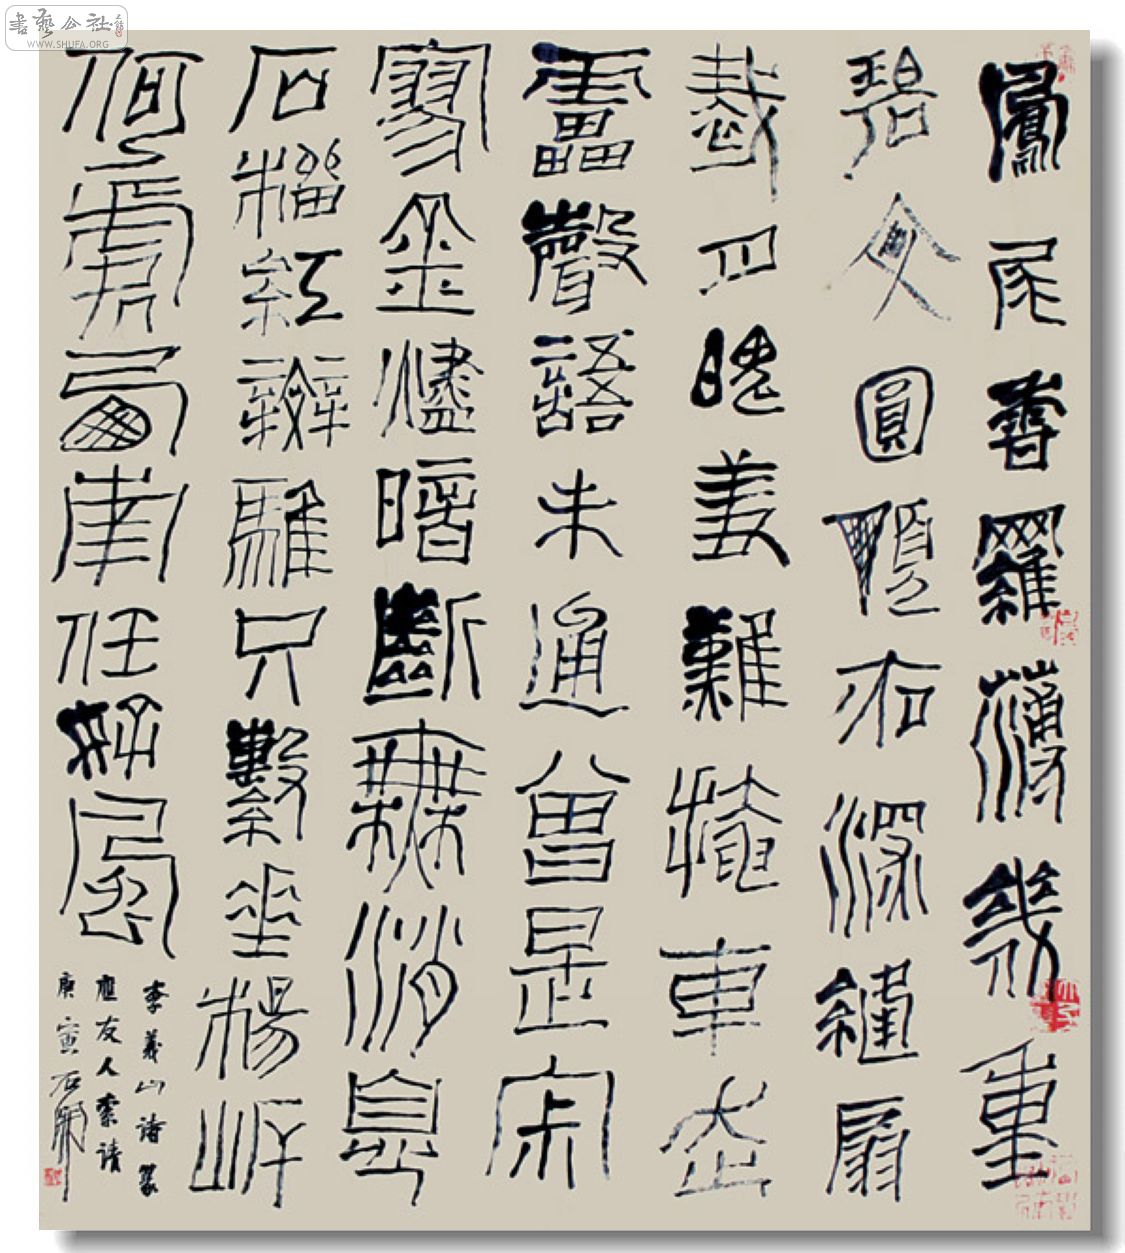 書藝公社
WWW.SHUFA.ORG
鳳尾香羅薄幾重
碧文圓頂夜深縫扇
裁月魄羞難掩車走
雷聲語未通曾是寂
寥金燼暗斷無消息
石榴紅辬騅只繫垂楊岸
何處西南任好風
李義山詩篆
應友人索請
庚寅石開